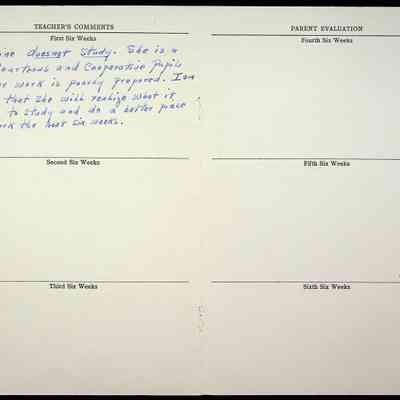 TEACHER'S COMMENTS
First Six Weeks
ine doesnot study. She is a
Courteous and Cooperative Pupils
work is poorly prepared. I am
that she will realize what it
to study and do a better piece
ork the next six weeks.
Second Six Weeks
Third Six Weeks
PARENT EVALUATION
Fourth Six Weeks
Fifth Six Weeks
Sixth Six Weeks